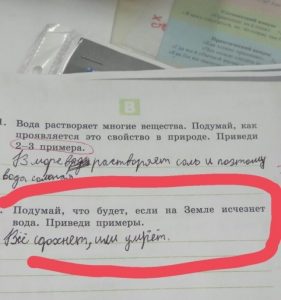 В
1. Вода растворяет многие вещества. Подумай, как
проявляется это свойство в природе. Приведи
2–3 примера.
В море вода растворяет соль и поэтому
вода соленая
. Подумай, что будет, если на Земле исчезнет
вода. Приведи примеры.
Всё сдохнет, или умрёт.